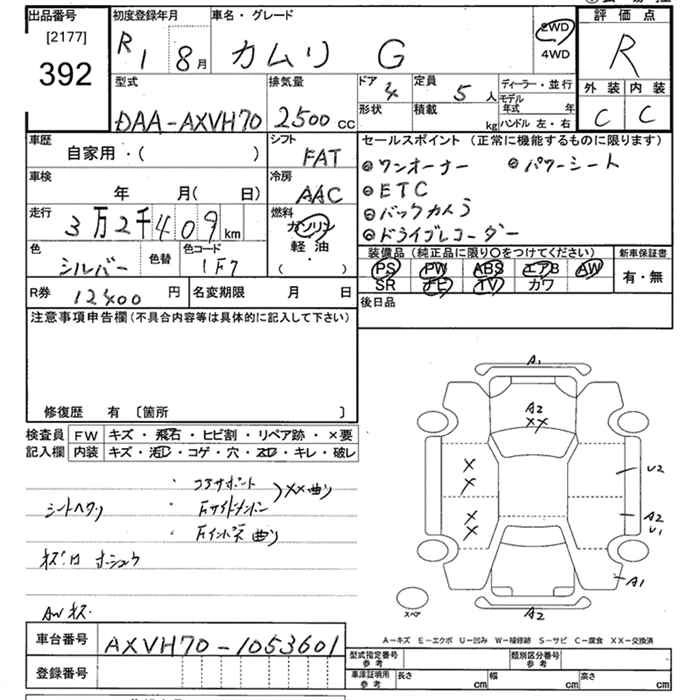 出品番号
[2177]
392
初度登録年月
R 1 8月
車名・グレード
カムリ G
2WD
4WD
評価点
R
外装 内装
C C
型式
DAA-AXVH70
排気量
2500 cc
ドア 4
形状
定員 5 人
積載 kg
ディーラー・並行
モデル年式 年
ハンドル 左・右
車歴
自家用・( )
シフト
FAT
セールスポイント (正常に機能するものに限ります)
ワンオーナー パワーシート
ETC
バックカメラ
ドライブレコーダー
車検
年 月( 日)
冷房
AAC
走行
3万2千409 km
燃料
ガソリン
軽油
( )
色
シルバー
色替
色コード
1F7
装備品 (純正品に限り○をつけてください)
PS PW ABS エアB AW
SR ナビ TV カワ
新車保証書
有・無
R券 12400 円
名変期限 月 日
後日品
注意事項申告欄(不具合内容等は具体的に記入して下さい)
修復歴 有 〔箇所 〕
検査員記入欄
FW キズ・飛石・ヒビ割・リペア跡・×要
内装 キズ・汚レ・コゲ・穴・スレ・キレ・破レ
コアサポート
Fサイドメンバー
Fインパネ 曲り
XX曲り
シートヘタリ
AWキズ
A1
A2
XX
X
X
X
X
U2
A2
U1
A1
A2
スペア
A-キズ E-エクボ U-凹み W-補修跡 S-サビ C-腐食 XX-交換済
車台番号
AXVH70-1053601
登録番号
型式指定番号
参考
類別区分番号
参考
車庫証明用
参考
長さ cm
幅 cm
高さ cm